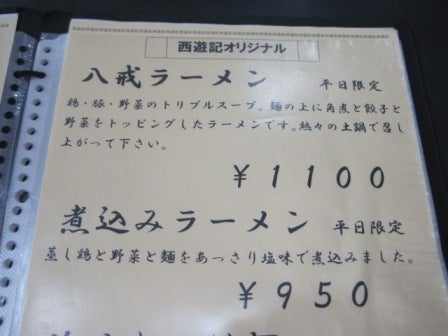 西遊記オリジナル
八戒ラーメン 平日限定
鶏・豚・野菜のトリプルスープ。麺の上に角煮と餃子と
野菜をトッピングしたラーメンです。熱々の土鍋で召し
上がって下さい。
￥1100
煮込みラーメン 平日限定
蒸し鶏と野菜と麺をあっさり塩味で煮込みました。
￥950